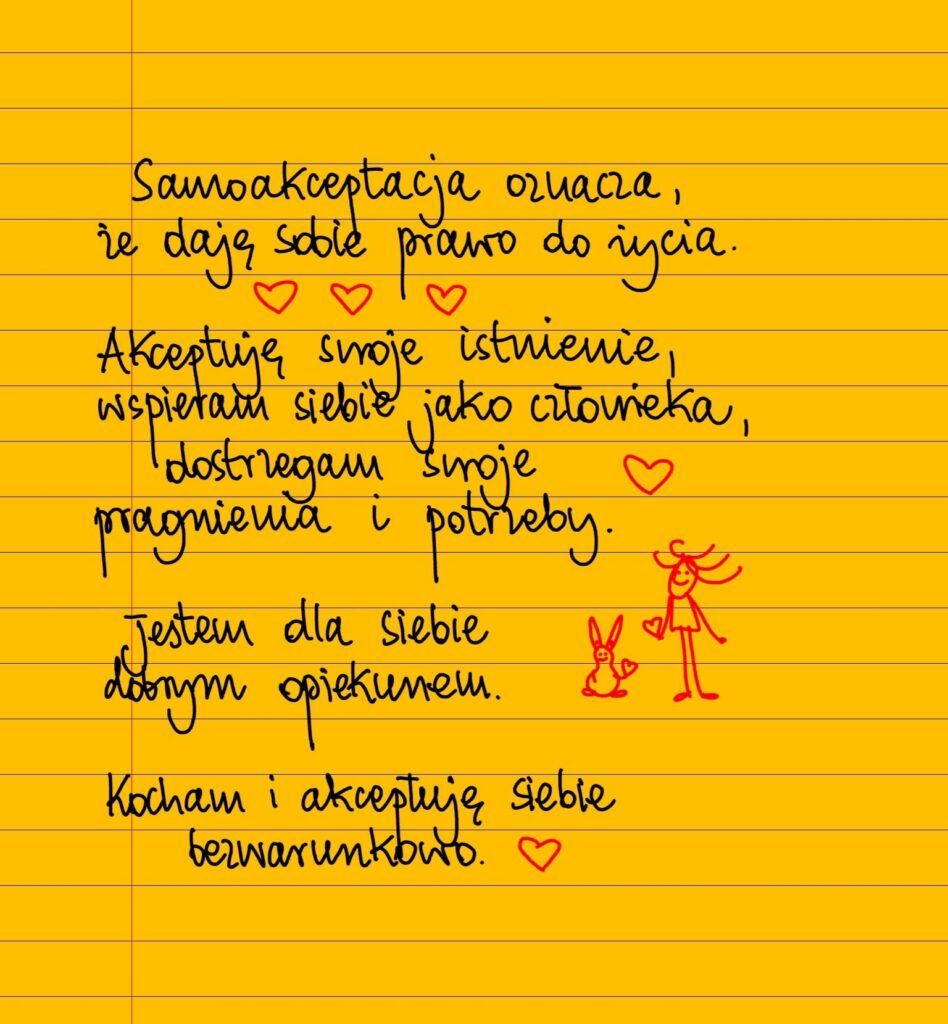 Samoakceptacja oznacza,
że daję sobie prawo do życia.
Akceptuję swoje istnienie,
wspieram siebie jako człowieka,
dostrzegam swoje
pragnienia i potrzeby.
Jestem dla siebie
dobrym opiekunem.
Kocham i akceptuję siebie
bezwarunkowo.